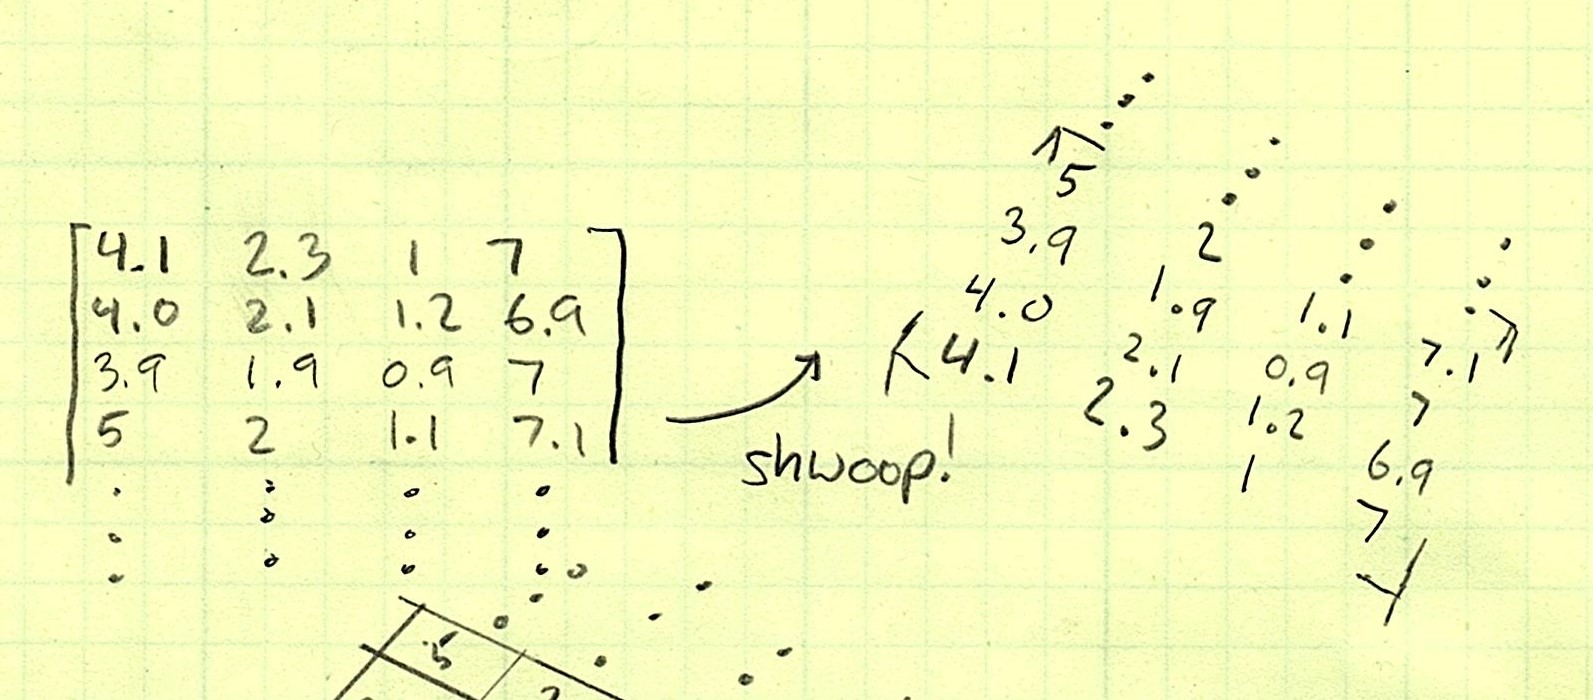 4.1 2.3 1 7
4.0 2.1 1.2 6.9
3.9 1.9 0.9 7
5 2 1.1 7.1
shwoop!
5
3.9 2
4.0 1.9 1.1
4.1 2.1 0.9 7.1
2.3 1.2 7
1 6.9
7
5